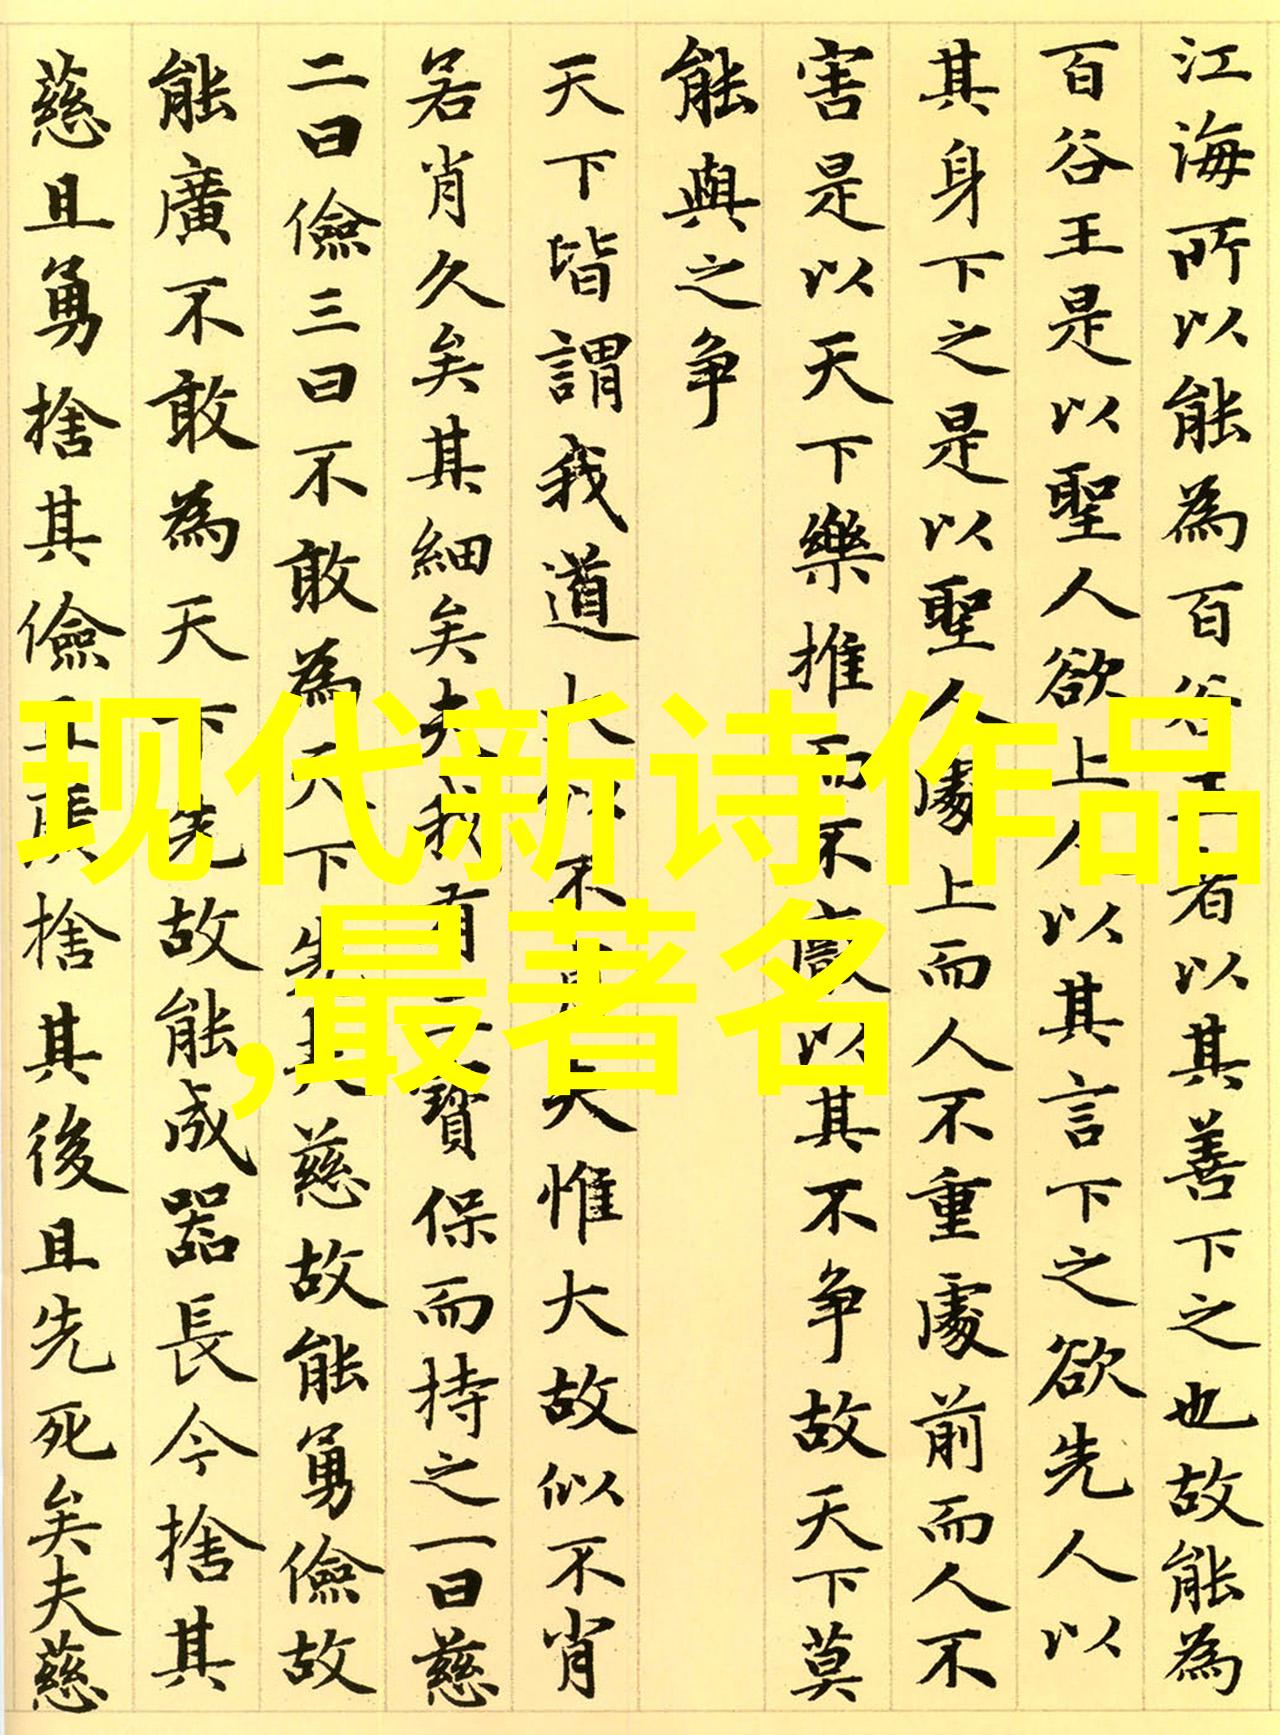 江海所以能為百谷王者以其善下之也故能為
百谷王是以聖人欲上人以其言下之欲先人以
其身下之是以聖人處上而人不重處前而人不
害是以天下樂推而不厭以其不争故天下莫
能與之争
天下皆謂我道大似不肖夫惟大故似不肖
若肖久矣其細矣夫我有三寶保而持之一曰慈
二曰儉三曰不敢為天下先夫慈故能勇儉故
能廣不敢為天下先故能成器長今捨其
慈且勇捨其儉且廣捨其後且先死矣夫慈
现代新诗作品
,最著名